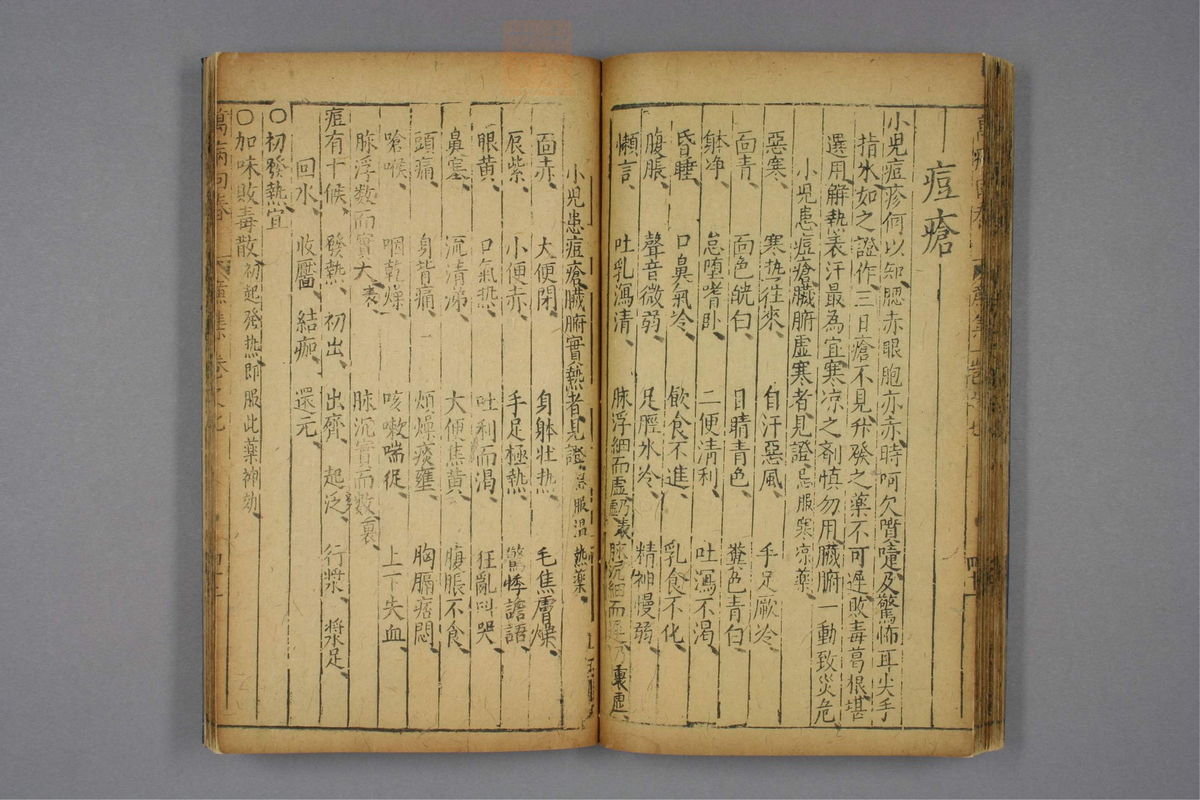 痘瘡
小児痘疹何以知腮赤眼胞亦赤時呵欠噴嚏及驚怖耳尖手
指氷如之證作三日瘡不見升發之藥不可遲敗毒葛根堪
選用解熱表汗最為宜寒凉之剤慎勿用臓腑一動致災危
小児患痘瘡臓腑虛寒者見證忌服寒凉藥
惡寒 寒热往來 自汗惡風 手足厥冷
面青 面色㿠白 目睛青色 糞色青白
躰净 怠堕嗜卧 二便清利 吐瀉不渴
昏睡 口鼻氣冷 飲食不進 乳食不化
腹脹 聲音微弱 足脛氷冷 精神慢弱
懶言 吐乳瀉清 脉浮細而虛 脉沉細而 裏虛
小児患痘瘡臓腑實熱者見證 服温熱藥
面赤 大便閉 身躰壮热 毛焦膚燥
唇紫 小便赤 手足極熱 驚悸譫語
眼黄 口氣热 吐利而渴 狂亂叫哭
鼻塞 流清涕 大便焦黄 腹脹不食
頭痛 身背痛 煩燥痰壅 胸膈痞悶
嗆喉 咽乾燥 咳嗽喘促 上下失血
脉浮数而實大表 脉沉實而数裏
痘有十候 發熱 初出 出齊 起泛 行漿 漿足
回水 收靨 結痂 還元
○初發熱宜
○加味敗毒散初起發热即服此藥神効
萬病回春